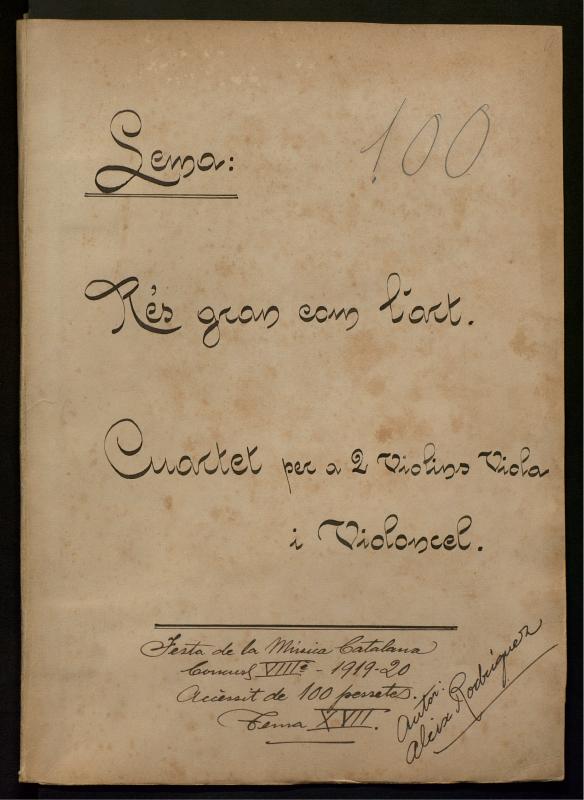 Lema:
100
Rés gran com l'art.
Cuartet per a 2 Violins Viola
i Violoncel.
Festa de la Música Catalana
Concurs VIIIè - 1919-20
Accèssit de 100 pessetes.
Tema XVII.
Autor:
Aleix Rodríguez